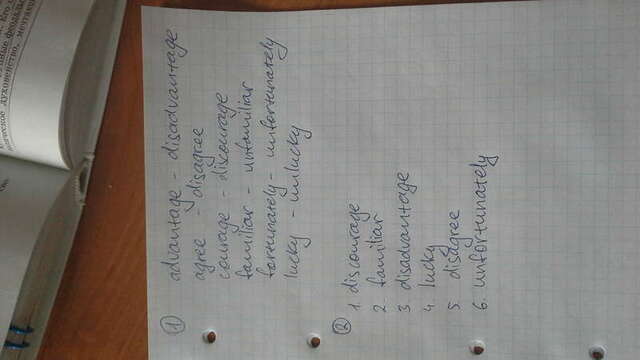 ① advantage - disadvantage
agree - disagree
courage - discourage
familiar - unfamiliar
fortunately - unfortunately
lucky - unlucky
② 1. discourage
2. familiar
3. disadvantage
4. lucky
5. disagree
6. unfortunately
духовенство,